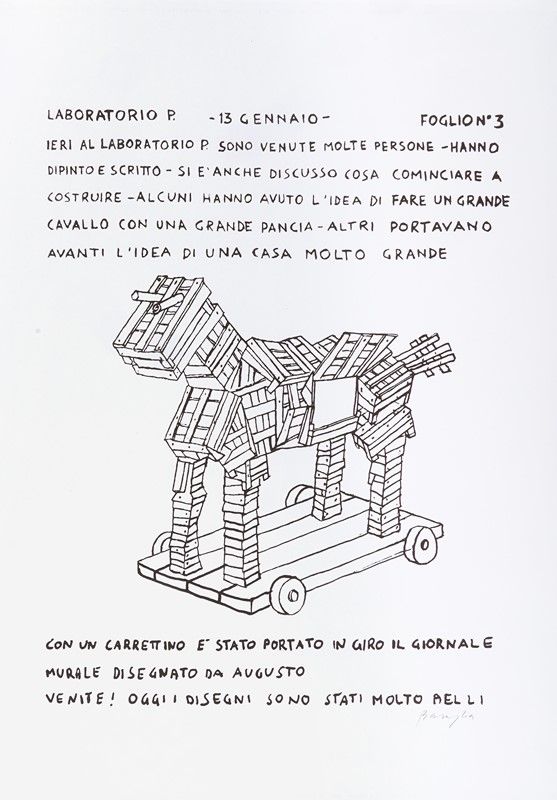 LABORATORIO P. -13 GENNAIO- FOGLIO N°3
IERI AL LABORATORIO P. SONO VENUTE MOLTE PERSONE -HANNO
DIPINTO E SCRITTO - SI E' ANCHE DISCUSSO COSA COMINCIARE A
COSTRUIRE -ALCUNI HANNO AVUTO L'IDEA DI FARE UN GRANDE
CAVALLO CON UNA GRANDE PANCIA - ALTRI PORTAVANO
AVANTI L'IDEA DI UNA CASA MOLTO GRANDE
CON UN CARRETTINO E' STATO PORTATO IN GIRO IL GIORNALE
MURALE DISEGNATO DA AUGUSTO
VENITE! OGGI I DISEGNI SONO STATI MOLTO BELLI